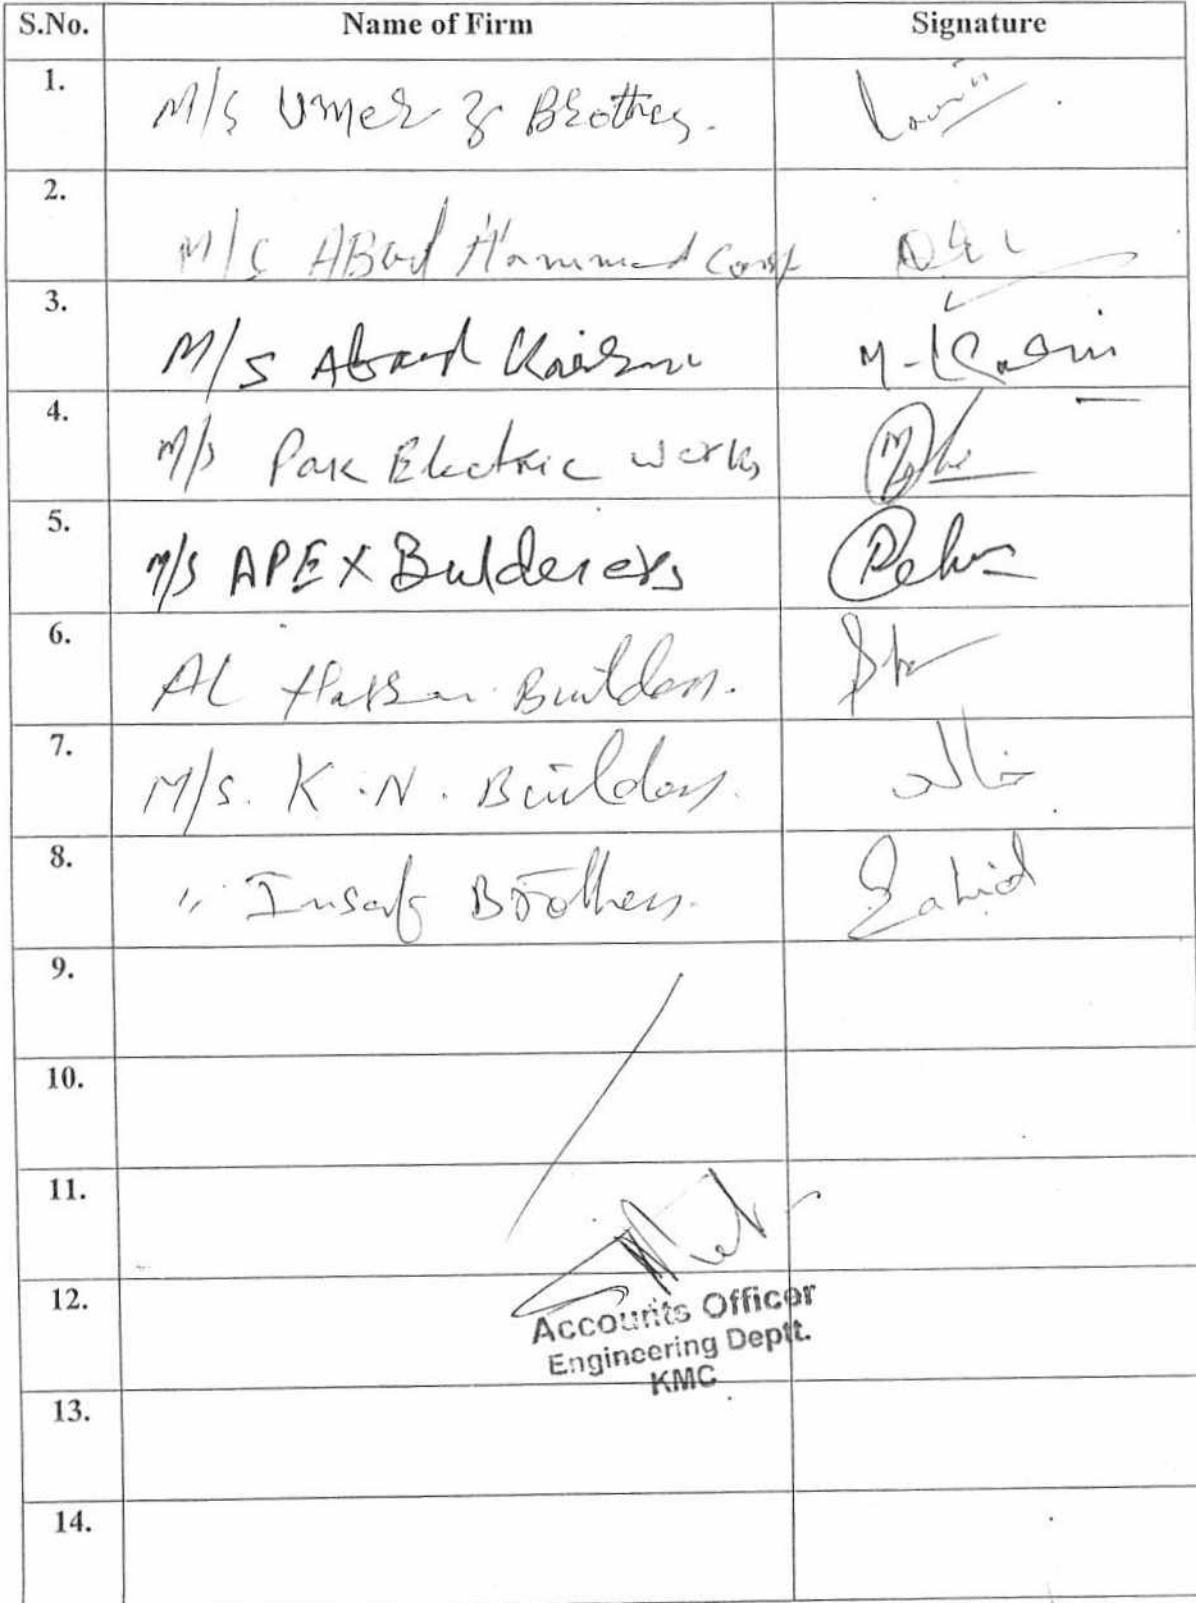 S.No. Name of Firm Signature
1. M/S Umer & Brothers.
2. M/S ABad Hammad Const
3. M/S Abad M. Kasim
4. M/S Pak Electric Works
5. M/S APEX Bulderers
6. AL Hassan Builders.
7. M/S. K.N. Builders. خالد
8. " Insaf Brothers. Zahid
9.
10.
11.
12.
Accounts Officer
Engineering Deptt.
KMC
13.
14.